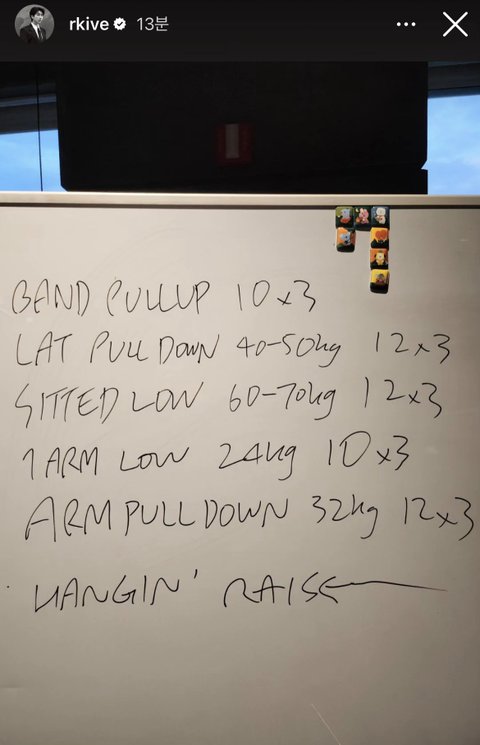 rkive 13분
BAND PULLUP 10x3
LAT PULL DOWN 40-50kg 12x3
SITTED LOW 60-70kg 12x3
1 ARM LOW 24kg 10x3
ARM PULL DOWN 32kg 12x3
HANGIN' RAISE